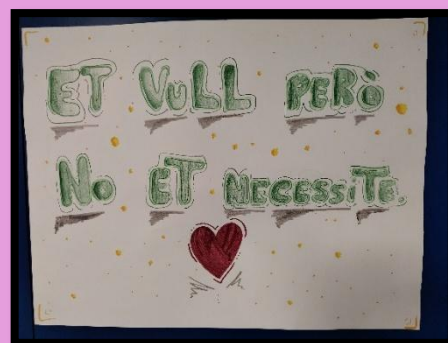 ET VULL PERÒ
NO ET NECESSITE.